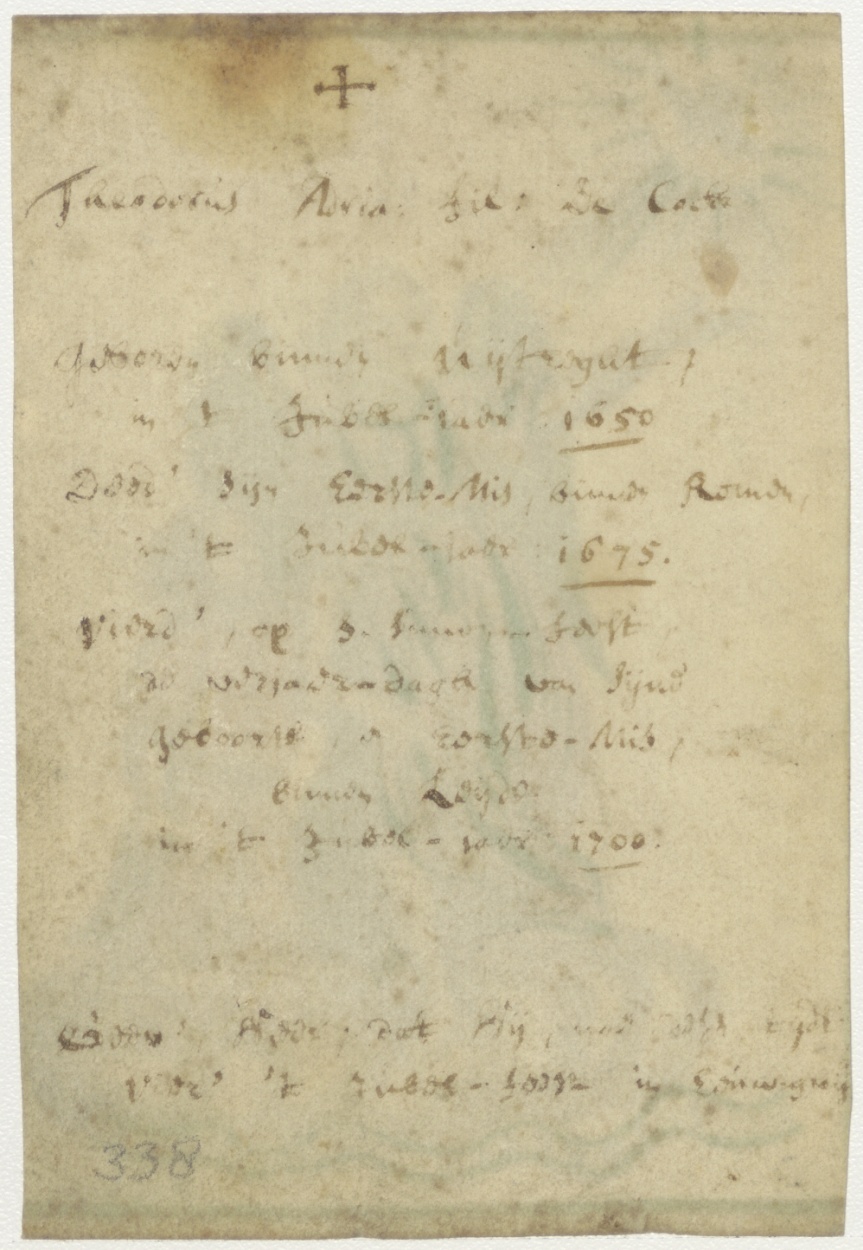 +
Theodorus Adria: fil: De Cock
geboren binnen Uijtreght,
in 't Jubel-jaer 1650
Deed' sijn Eerste-Mis, binnen Romen,
in 't Jubel-jaer 1675.
Vierd', op S. feest,
de verjaer-dagh van sijne
geboorte, en eerste-Mis,
binnen Leyde
in 't Jubel-jaer 1700.
Geev', Heer, dat Hij, nae dees' tijdt
Vier' 't Jubel-feest in Eeuwigheijt
338